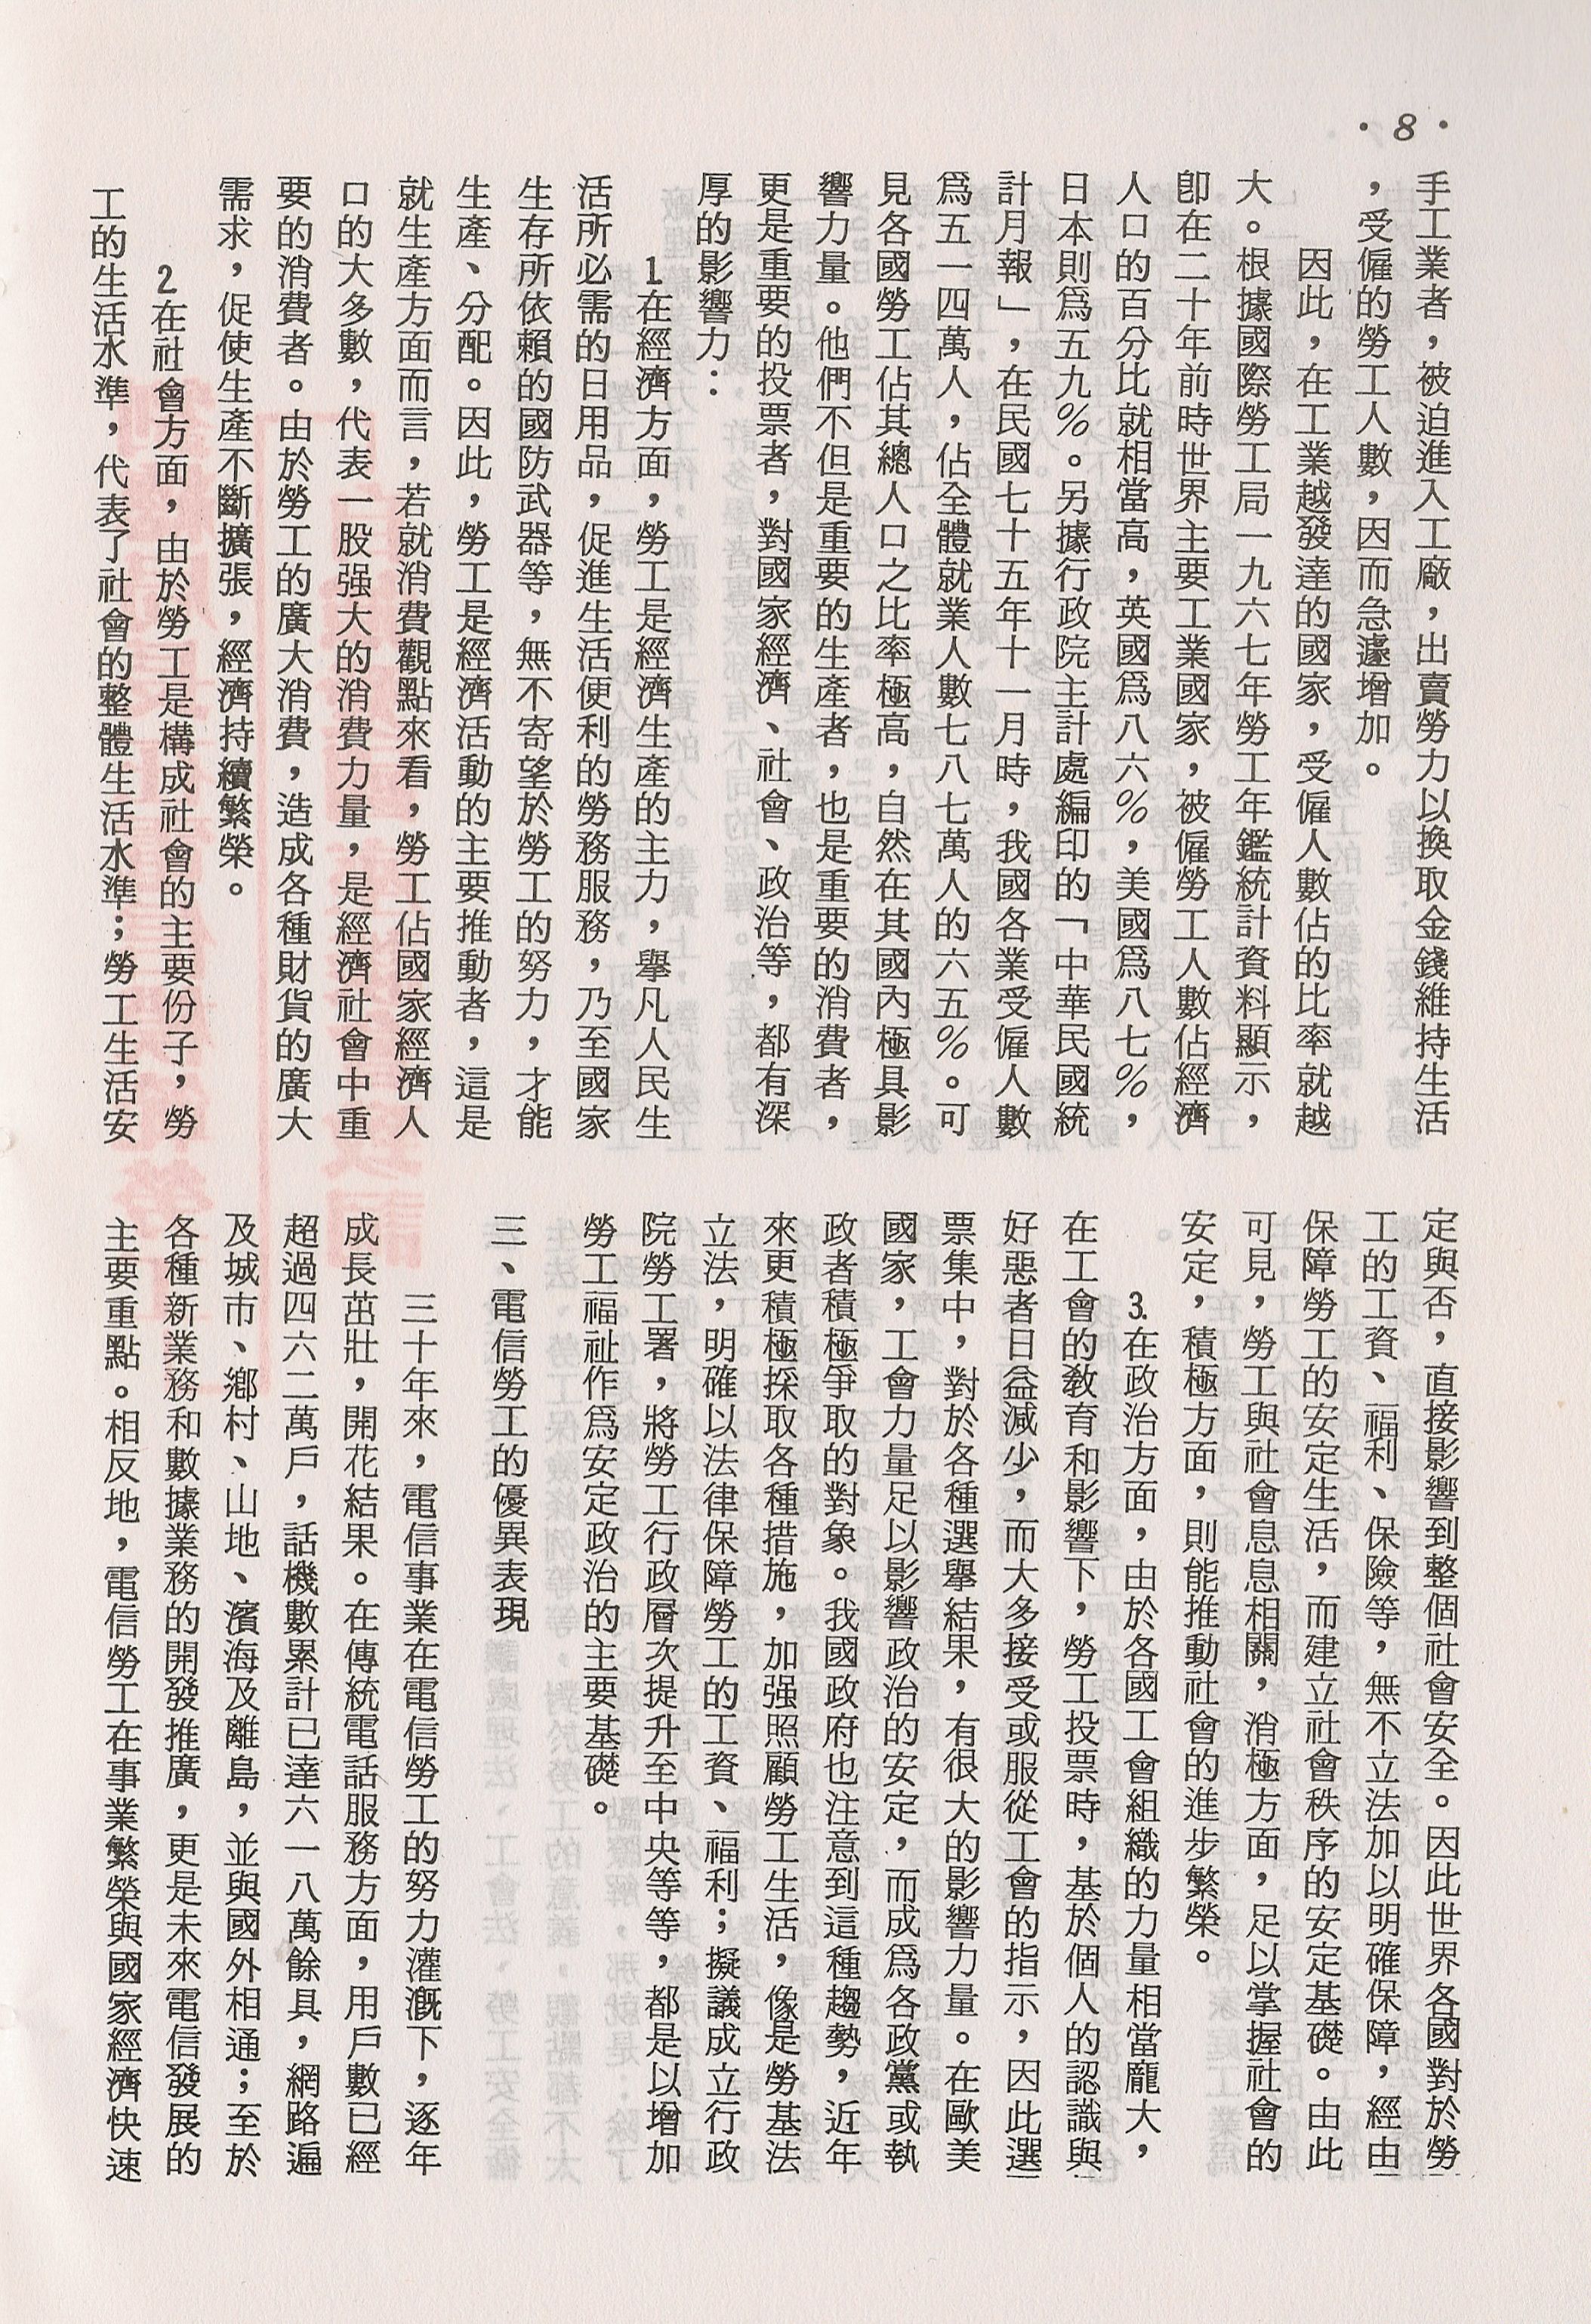 ・8・
手工業者，被迫進入工廠，出賣勞力以換取金錢維持生活
，受僱的勞工人數，因而急遽增加。
因此，在工業越發達的國家，受僱人數佔的比率就越
大。根據國際勞工局一九六七年勞工年鑑統計資料顯示，
卽在二十年前時世界主要工業國家，被僱勞工人數佔經濟
人口的百分比就相當高，英國爲八六％，美國爲八七％，
日本則爲五九％。另據行政院主計處編印的「中華民國統
計月報」，在民國七十五年十一月時，我國各業受僱人數
爲五一四萬人，佔全體就業人數七八七萬人的六五％。可
見各國勞工佔其總人口之比率極高，自然在其國內極具影
響力量。他們不但是重要的生產者，也是重要的消費者，
更是重要的投票者，對國家經濟、社會、政治等，都有深
厚的影響力：
1.在經濟方面，勞工是經濟生產的主力，擧凡人民生
活所必需的日用品，促進生活便利的勞務服務，乃至國家
生存所依賴的國防武器等，無不寄望於勞工的努力，才能
生產、分配。因此，勞工是經濟活動的主要推動者，這是
就生產方面而言，若就消費觀點來看，勞工佔國家經濟人
口的大多數，代表一股强大的消費力量，是經濟社會中重
要的消費者。由於勞工的廣大消費，造成各種財貨的廣大
需求，促使生產不斷擴張，經濟持續繁榮。
2.在社會方面，由於勞工是構成社會的主要份子，勞
工的生活水準，代表了社會的整體生活水準；勞工生活安
定與否，直接影響到整個社會安全。因此世界各國對於勞
工的工資、福利、保險等，無不立法加以明確保障，經由
保障勞工的安定生活，而建立社會秩序的安定基礎。由此
可見，勞工與社會息息相關，消極方面，足以掌握社會的
安定，積極方面，則能推動社會的進步繁榮。
3.在政治方面，由於各國工會組織的力量相當龐大，
在工會的敎育和影響下，勞工投票時，基於個人的認識與
好惡者日益減少，而大多接受或服從工會的指示，因此選
票集中，對於各種選擧結果，有很大的影響力量。在歐美
國家，工會力量足以影響政治的安定，而成爲各政黨或執
政者積極爭取的對象。我國政府也注意到這種趨勢，近年
來更積極採取各種措施，加强照顧勞工生活，像是勞基法
立法，明確以法律保障勞工的工資、福利；擬議成立行政
院勞工署，將勞工行政層次提升至中央等等，都是以增加
勞工福祉作爲安定政治的主要基礎。
三、電信勞工的優異表現
三十年來，電信事業在電信勞工的努力灌漑下，逐年
成長茁壯，開花結果。在傳統電話服務方面，用戶數已經
超過四六二萬戶，話機數累計已達六一八萬餘具，網路遍
及城市、鄕村、山地、濱海及離島，並與國外相通；至於
各種新業務和數據業務的開發推廣，更是未來電信發展的
主要重點。相反地，電信勞工在事業繁榮與國家經濟快速